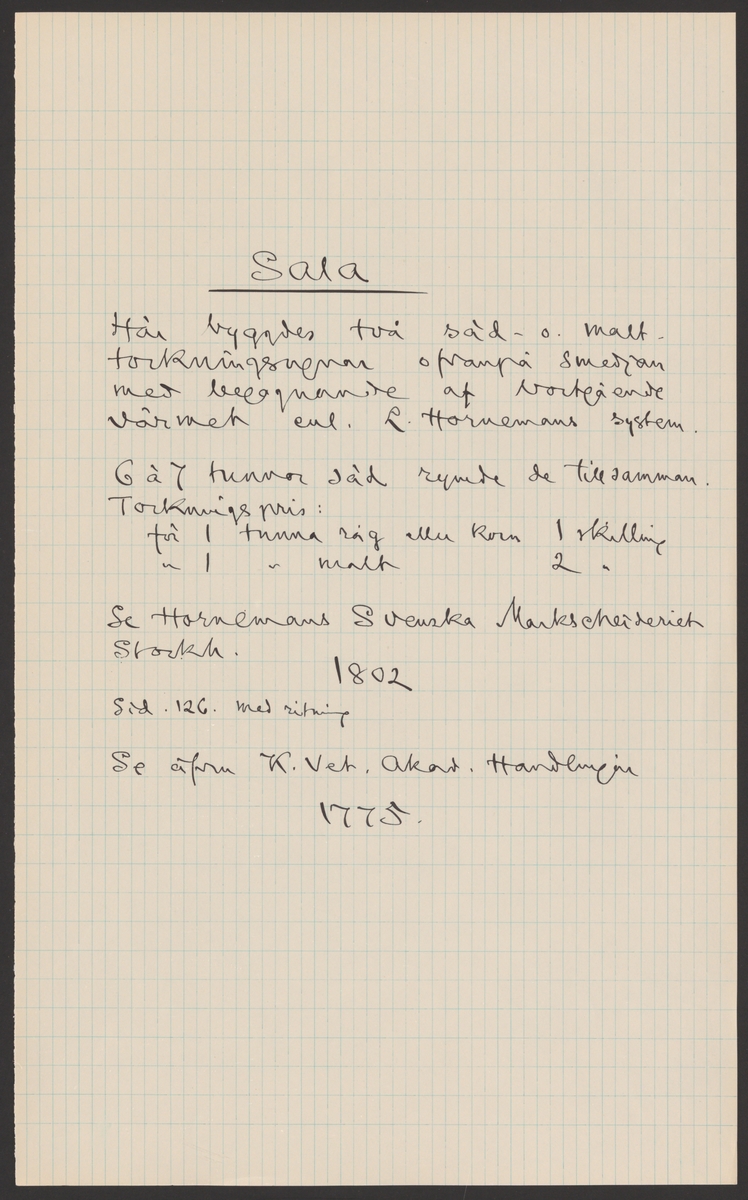 Sala
Här byggdes två säd- o. malt-
torkningsugnar ofvanpå smedjan
med begagnande af bortgående
värmet enl. L. Hornemans system.
6 à 7 tunnor säd rymde de tillsamman.
Torkningspris:
för 1 tunna råg eller korn 1 skilling
" 1 " malt 2 "
Se Hornemans Svenska Markscheideriet
Stockh.
1802
Sid. 126. med ritning
Se äfven K. Vet. Akad. Handlingar
1775.